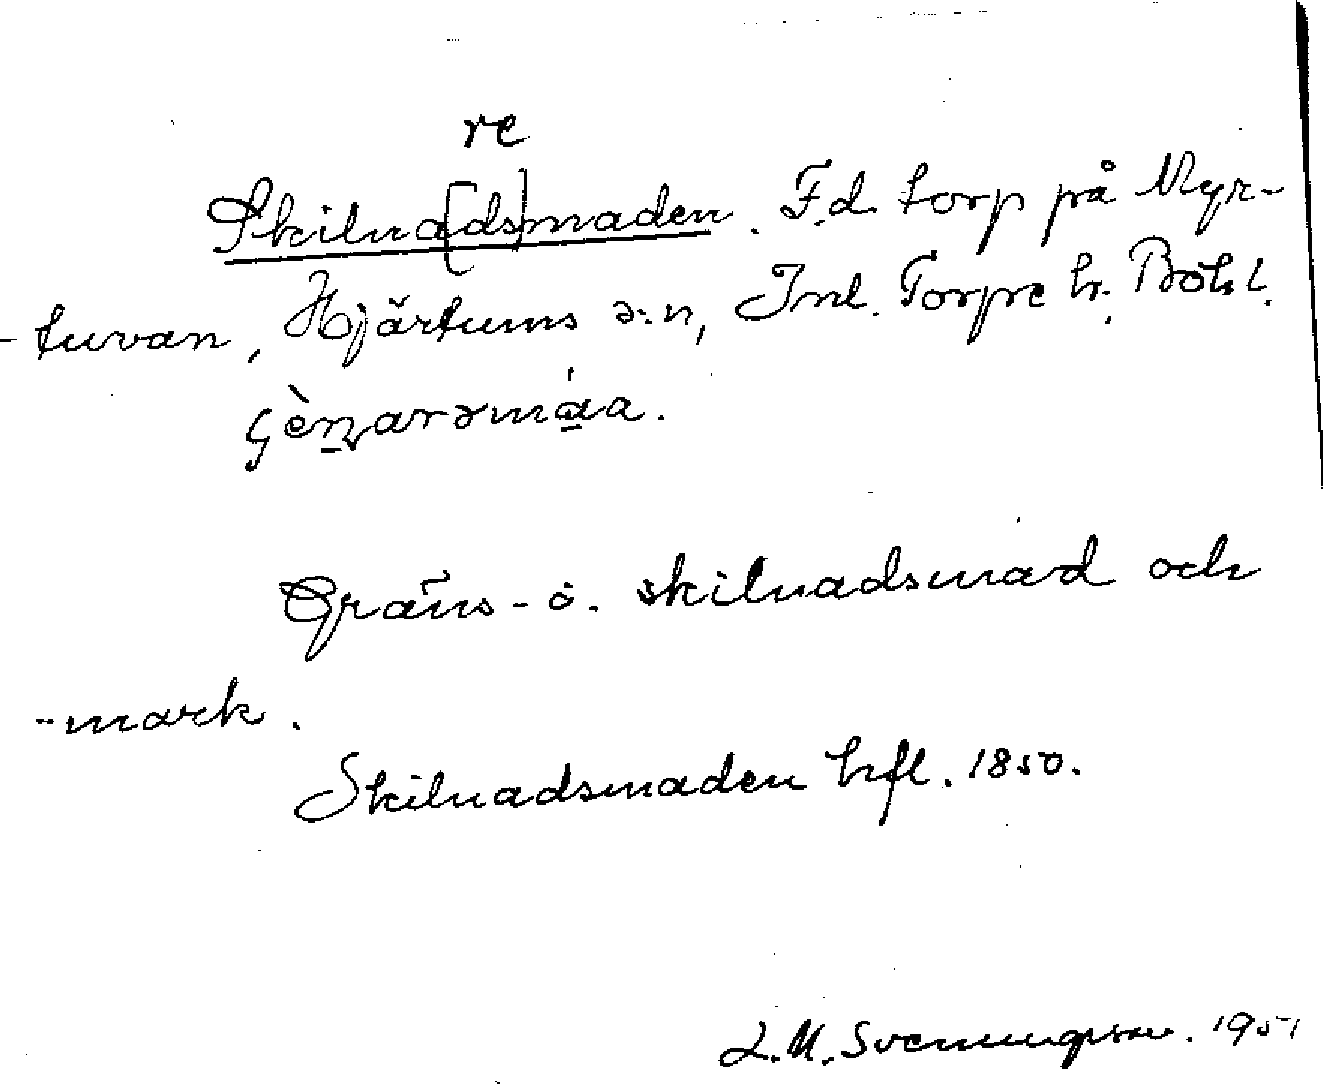 re
Skilna[ds]maden. F.d. torp på Myr-
-tuvan, Hjärtums s:n, Inl. Torpe hr. Bohl.
Gräns- o. skilnadsmad och
-mark.
Skilnadsmaden hfl. 1850.
L.M. Svenungsson. 1951